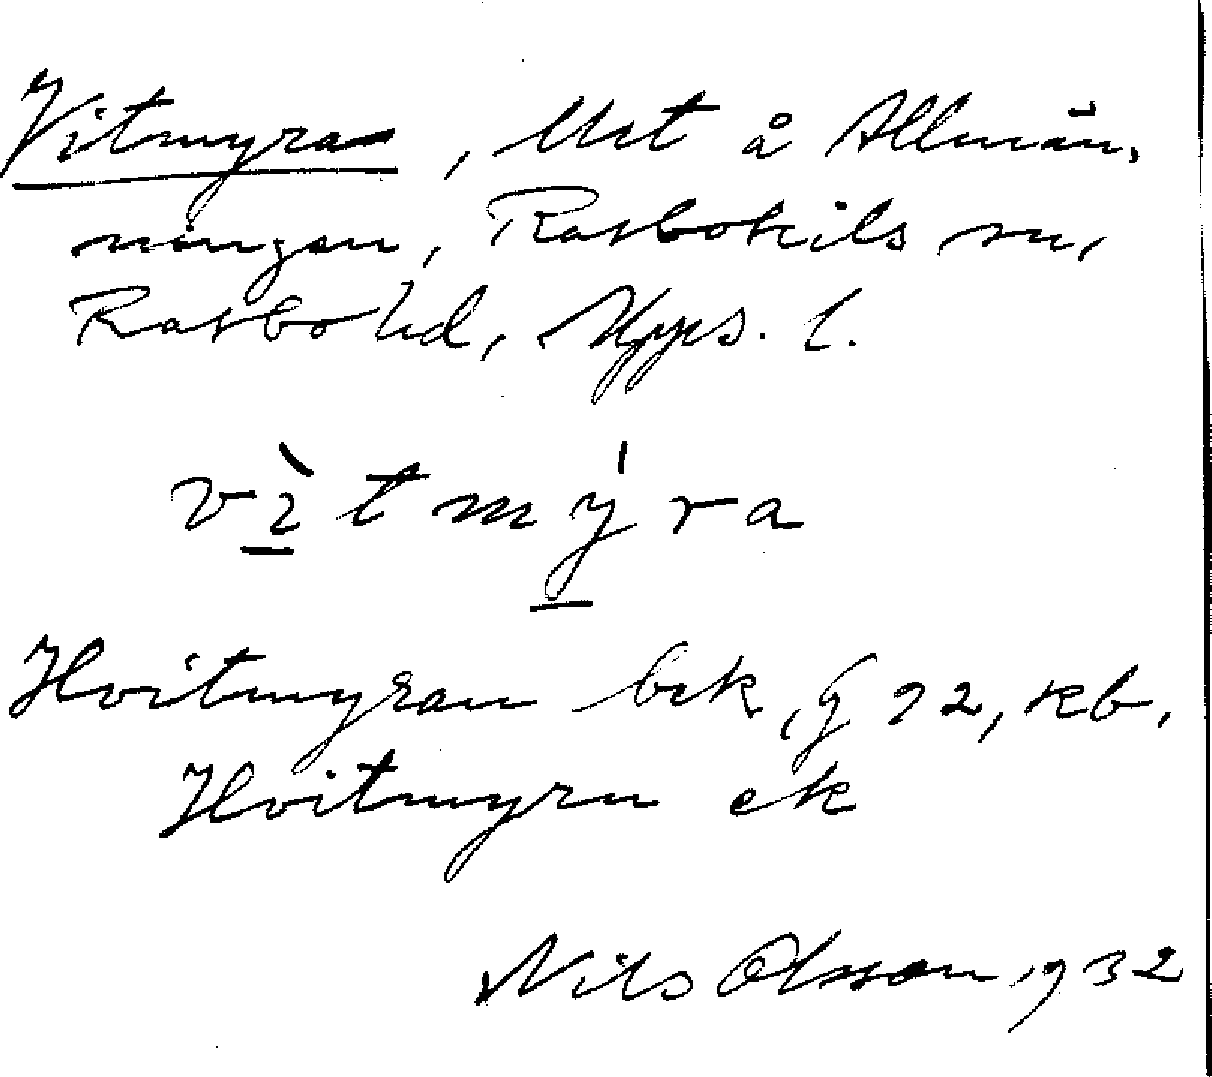 Vitmyra, Utt å Allmän,
ningen, Rasbokils sn,
Rasbo hd, Upps. l.
vìtmýra
Hvitmyran bek, G 92, kb,
Hvitmyrn ek
Nils Olsson 1932